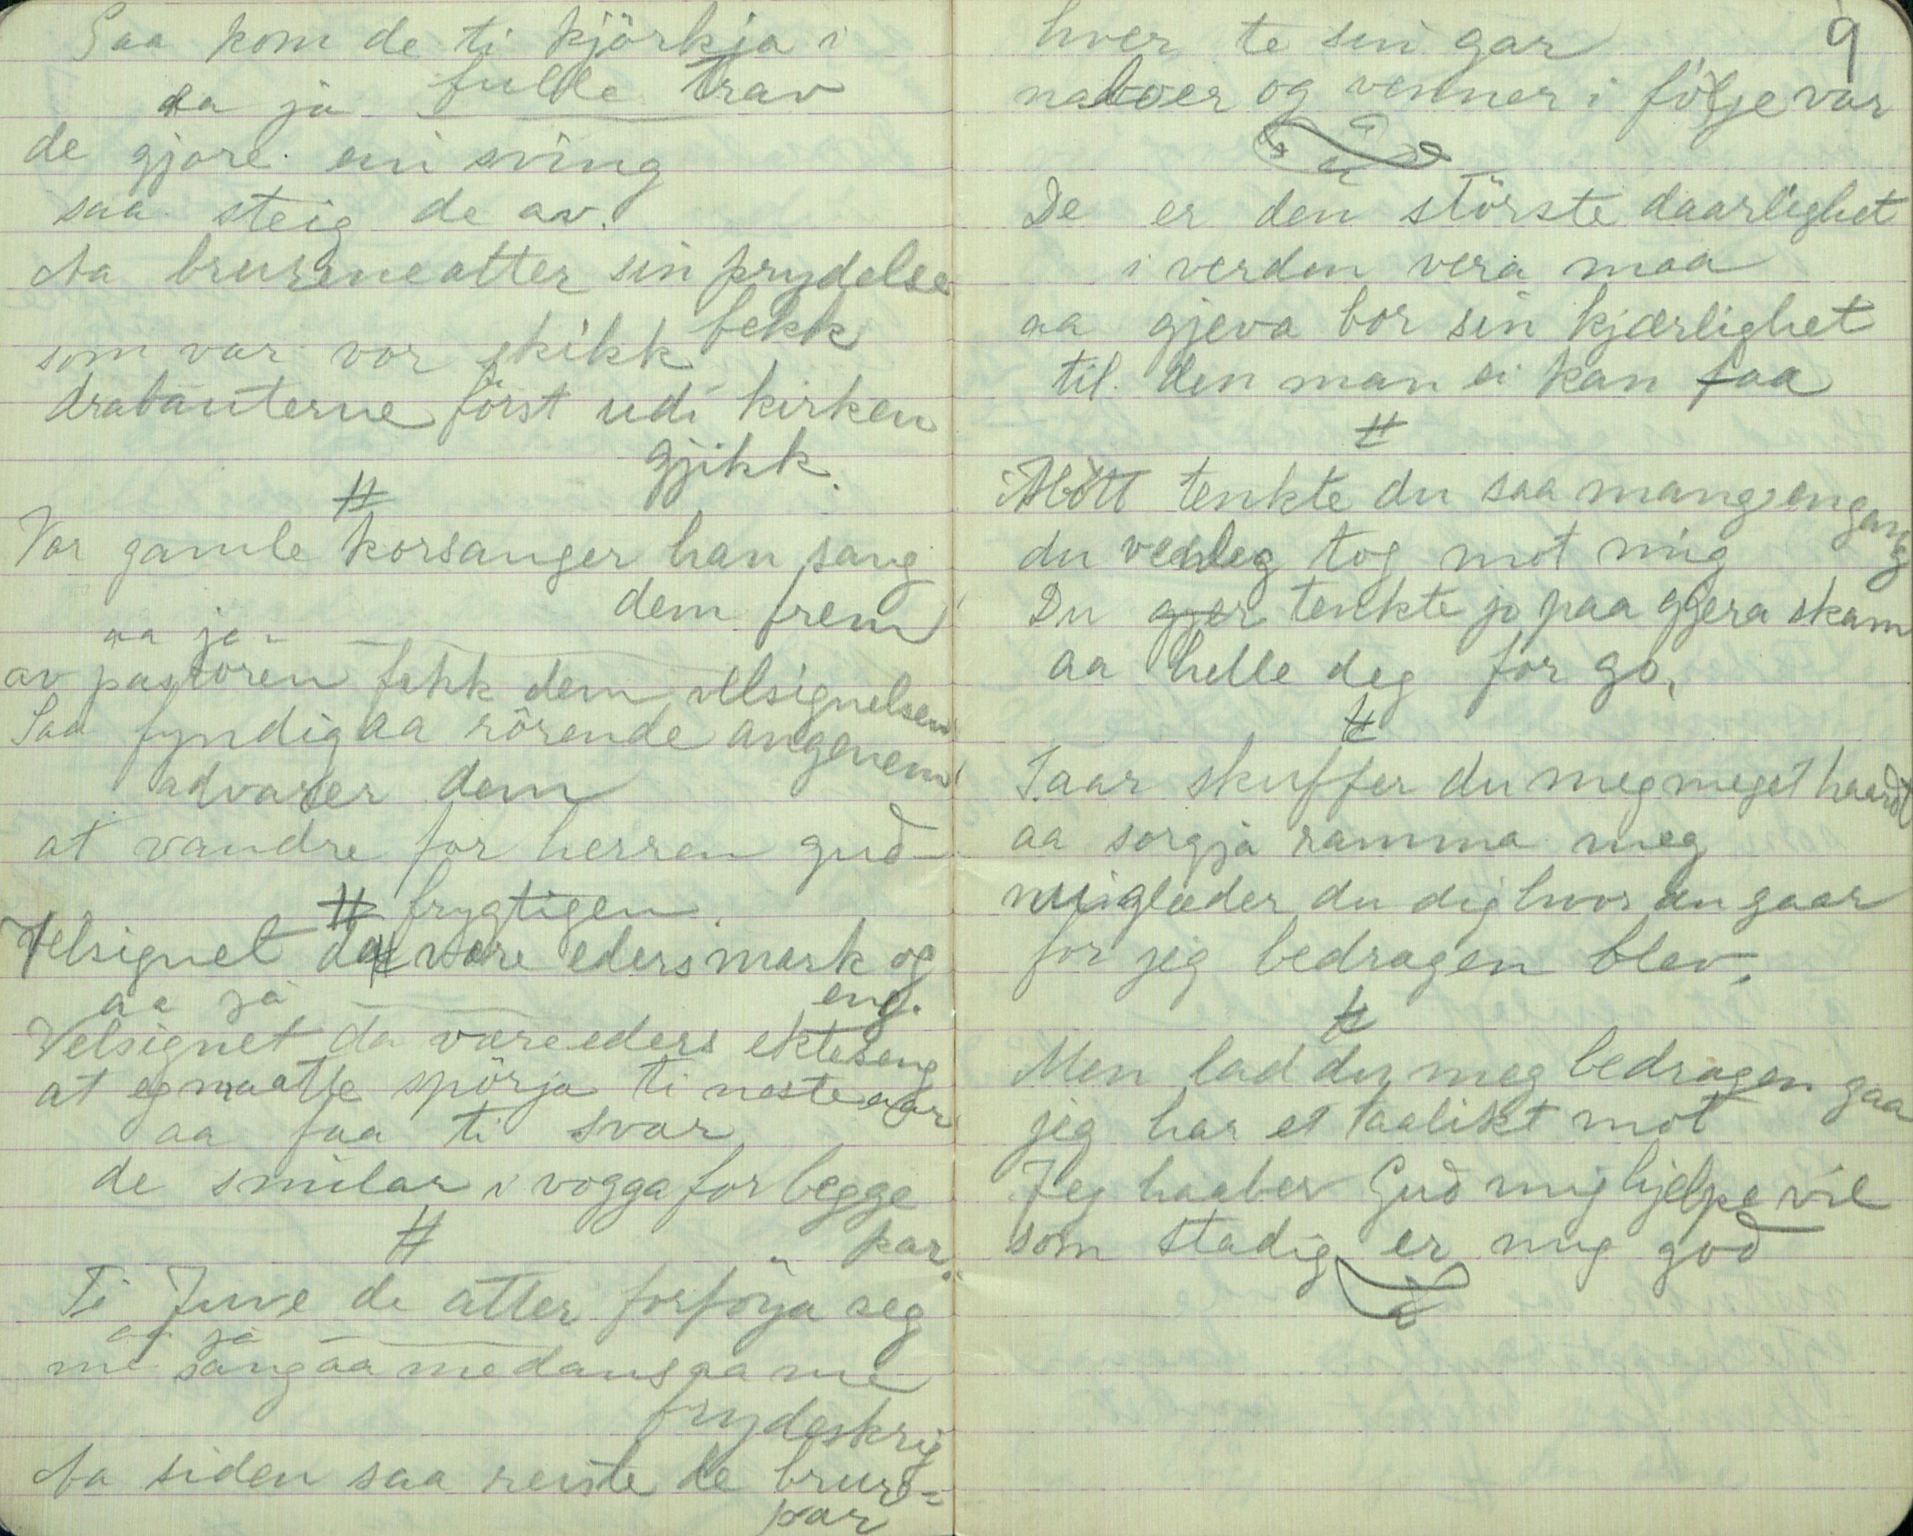 Saa kom de ti kjörkja i
fulle trav
aa ja
de gjore ein sving
saa steig de av.
Aa brurene atter sin prydelse
fekk
som var vor skikk
drabanterne först udi kirken
gjikk.
#
Vor gamle korsanger han sang
dem frem
aa ja
av pastoren fekk dem velsignelsen
Saa fyndig aa rörende angenem
advarer dem
at vandre for herren gud
frygtigen.
#
Velsignet da være eders mark og
eng.
aa ja
Velsignet da være eders ekteseng
at eg maatte spörja ti neste aar
aa faa ti svar
de smilar i vogga for begge
par.
#
Ti Juve de atter forföya seg
aa ja
me sang aa me dans aa me
frydeskrig
Aa siden saa reiste de brur=
par
9
hver te sin gar
naboer og venner i följe var
De er den störste daarlighet
i verden vera maa
aa gjeva bor sin kjærlighet
til den man ei kan faa
#
Mött tenkte du saa mang en gang
du venleg tog mot mig
Du gjer tenkte jo paa gjera skam
aa helle deg for go,
#
I aar skuffer du meg meget haardt
aa sorgja ramma meg
mei glæder du dig hvor du gaar
for jeg bedragen blev.
#
Men lad du meg bedragen gaa
jeg har et taalikt mot
Jeg haaber Gud mig hjelpe vil
som stadig er mig god